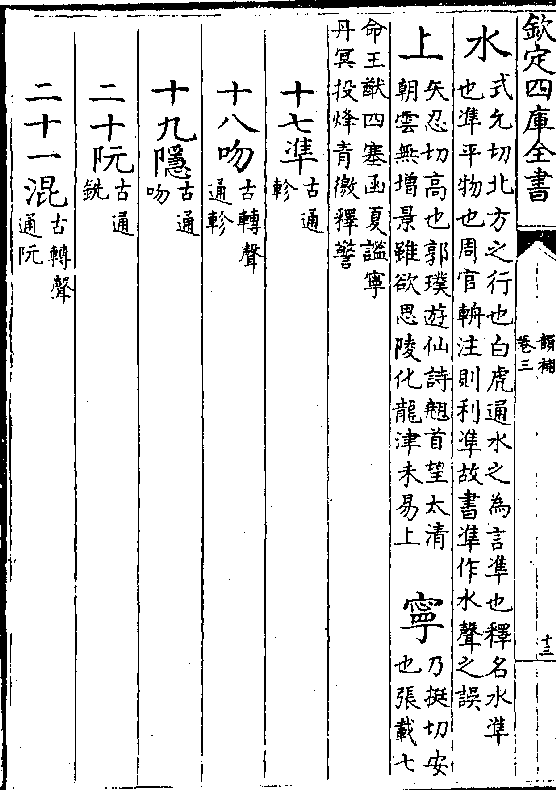 欽定四庫全書
韻補
卷三
十三
水
式允切北方之行也白虎通水之為言準也釋名水準
也準平物也周官輈注則利準故書準作水聲之誤
上
矢忍切高也郭璞遊仙詩翹首望太清
朝雲無增景雖欲思陵化龍津未易上
寧
乃挺切安
也張載七
命王猷四塞函夏謐寧
丹冥投烽青徼釋警
十七準
古通
軫
十八吻
古轉聲
通軫
十九隱
古通
吻
二十阮
古通
銑
二十一混
古轉聲
通阮